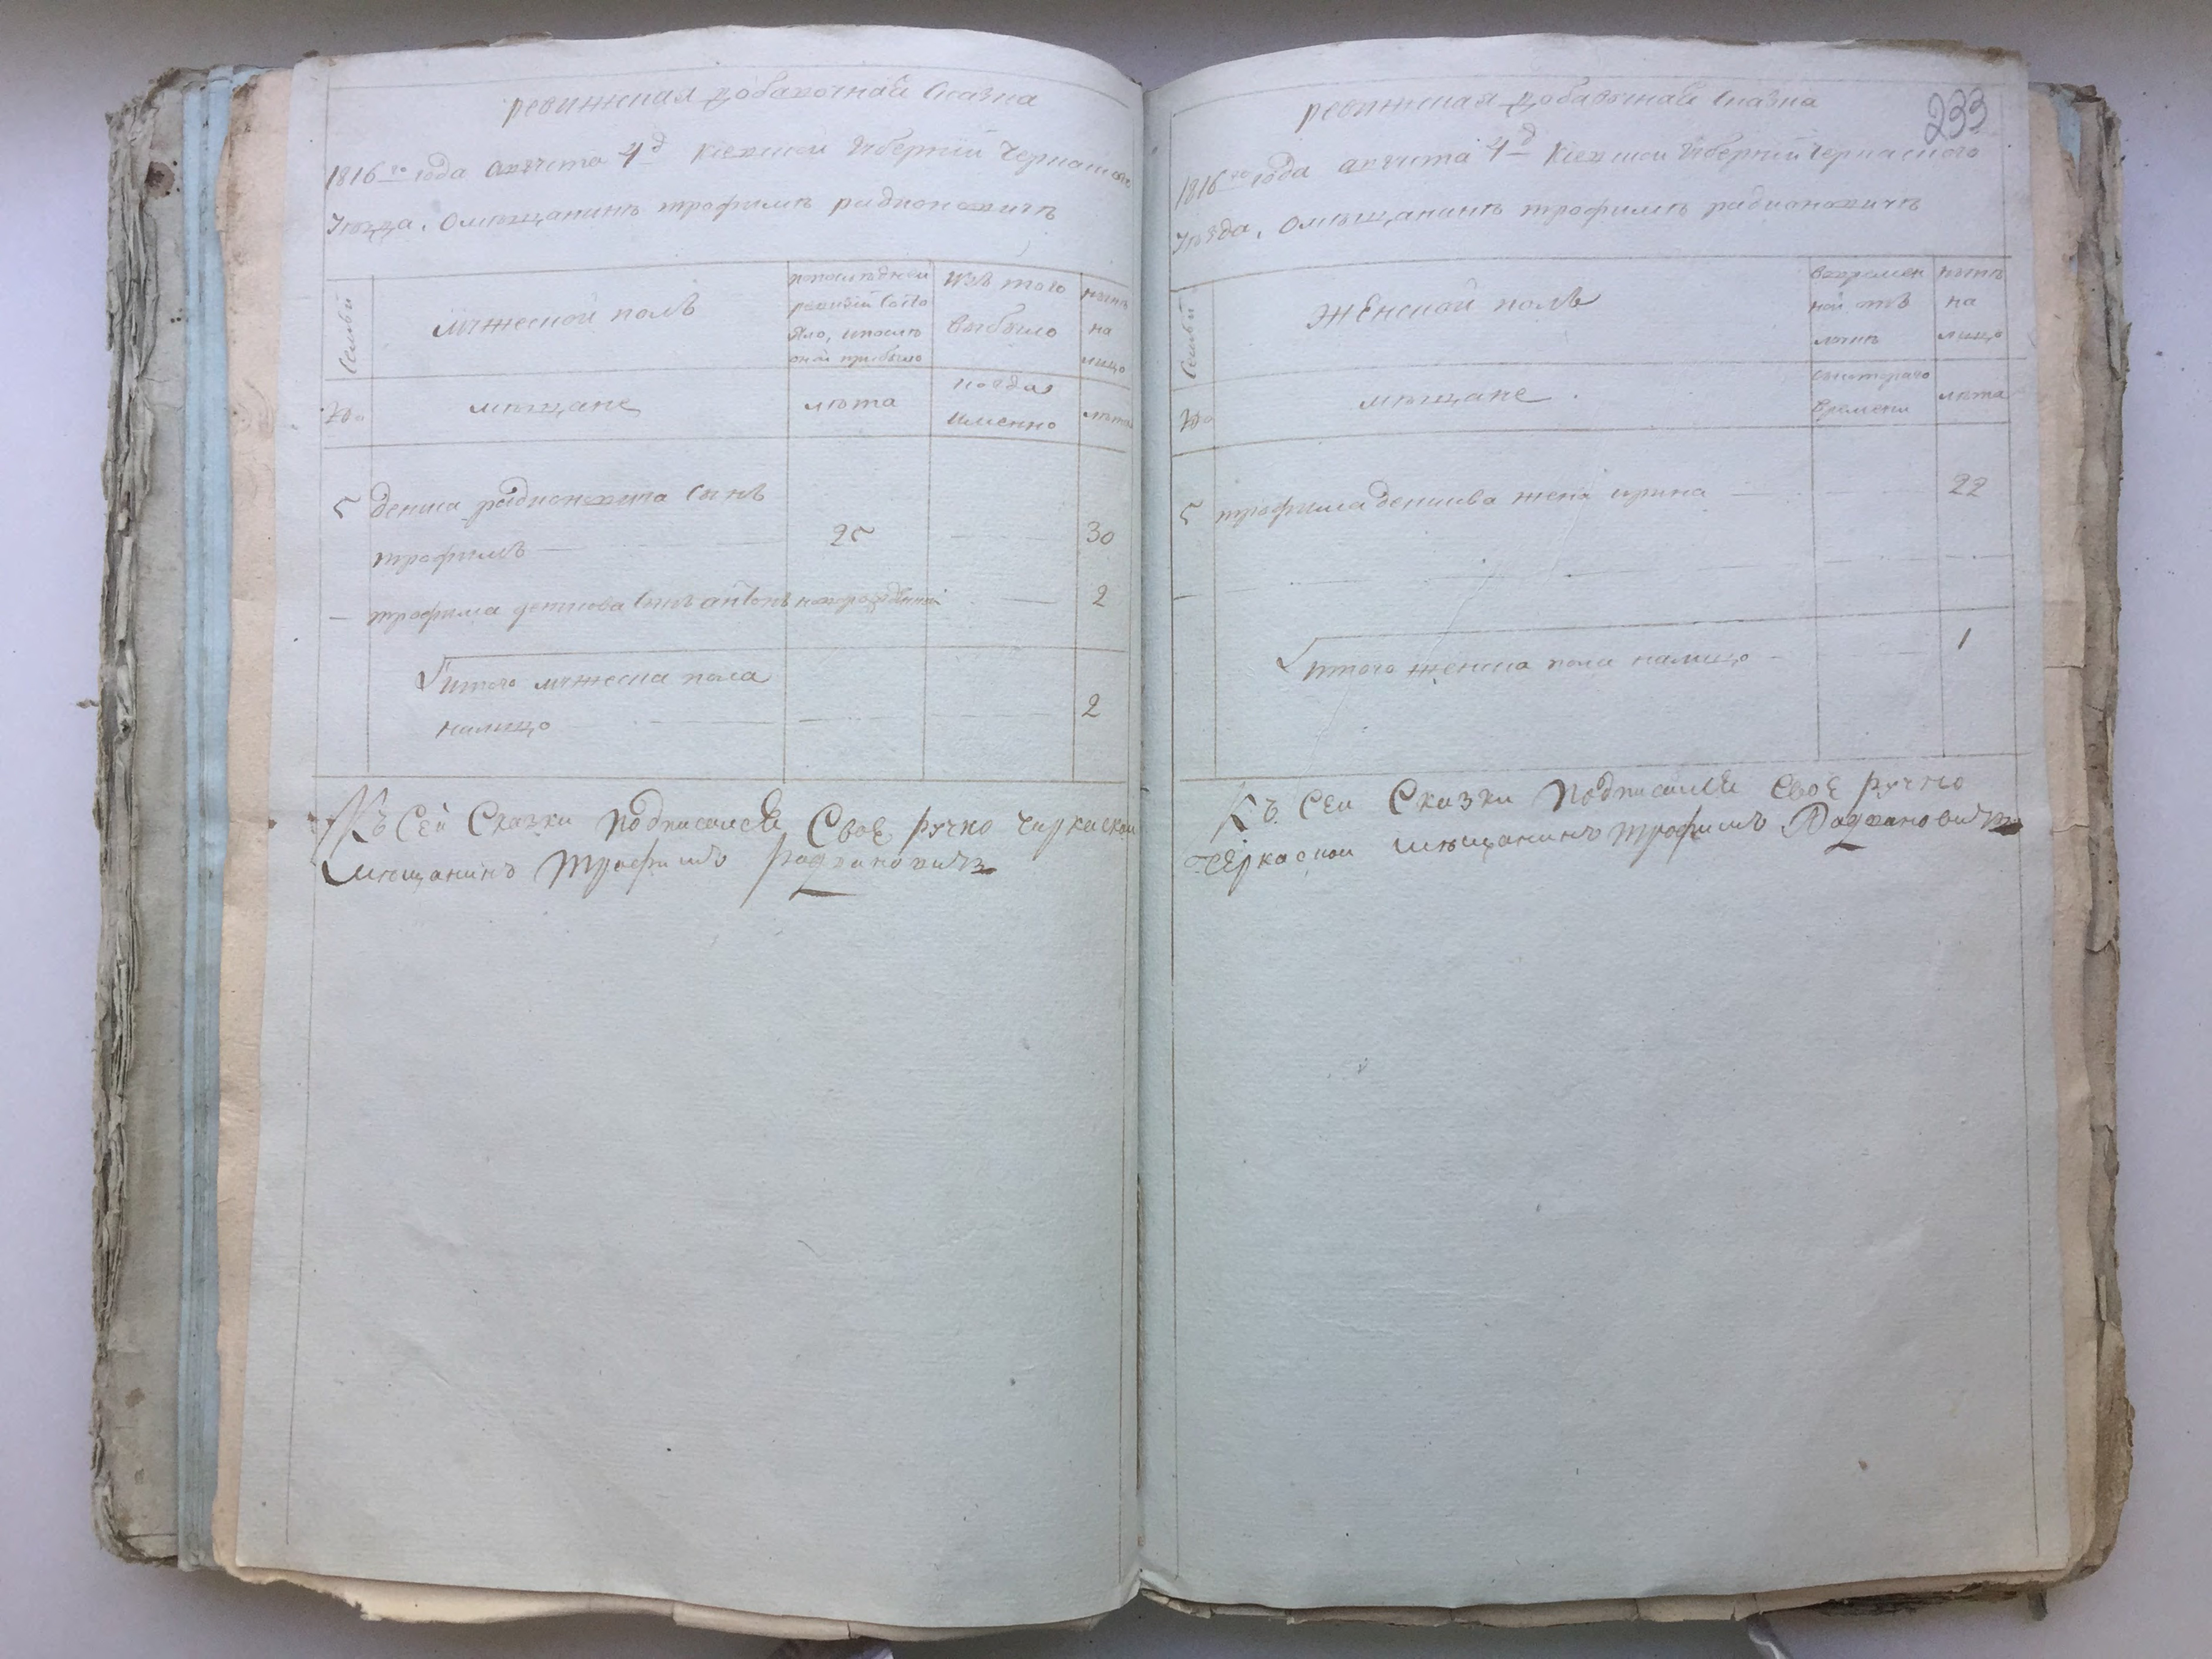 ревижская добавочная Сказка
1816го года августа 4д Киевской Губернїи Черкаского
уѣзда, О мѣщанинѣ трофимѣ радионовичѣ
Семьи
мужеской полъ
попослѣдней
ревизїи Состо
яло, ипослѣ
оной прибыло
Изъ того
выбыло
нынѣ
на
лицо
№о
мѣщане
лѣта
когда
именно
лѣта
5 дениса радионовича Сынъ
трофимъ 25 30
трофима денисова Сынъ антонъ новорожденный 2
итого мужеска пола
налицо 2
Къ Сей Сказки подписался Своеручно Чиркаской
мѣщанинъ Трофимъ Радионовичъ
233
ревижская добавочная Сказка
1816го года августа 4д Киевской Губернїи Черкаского
уѣзда, О мѣщанинѣ трофимѣ радионовичѣ
Семьи
Женской полъ
вовремен
ной отъ
лучкѣ
нынѣ
на
лицо
№о
мѣщане
Скотораго
времени
лѣта
5 трофима денисова жена ирина 22
итого женска пола налицо 1
Къ Сей Сказки Подписался Своеручно
Черкаской мѣщанинъ Трофимъ Радионовичъ